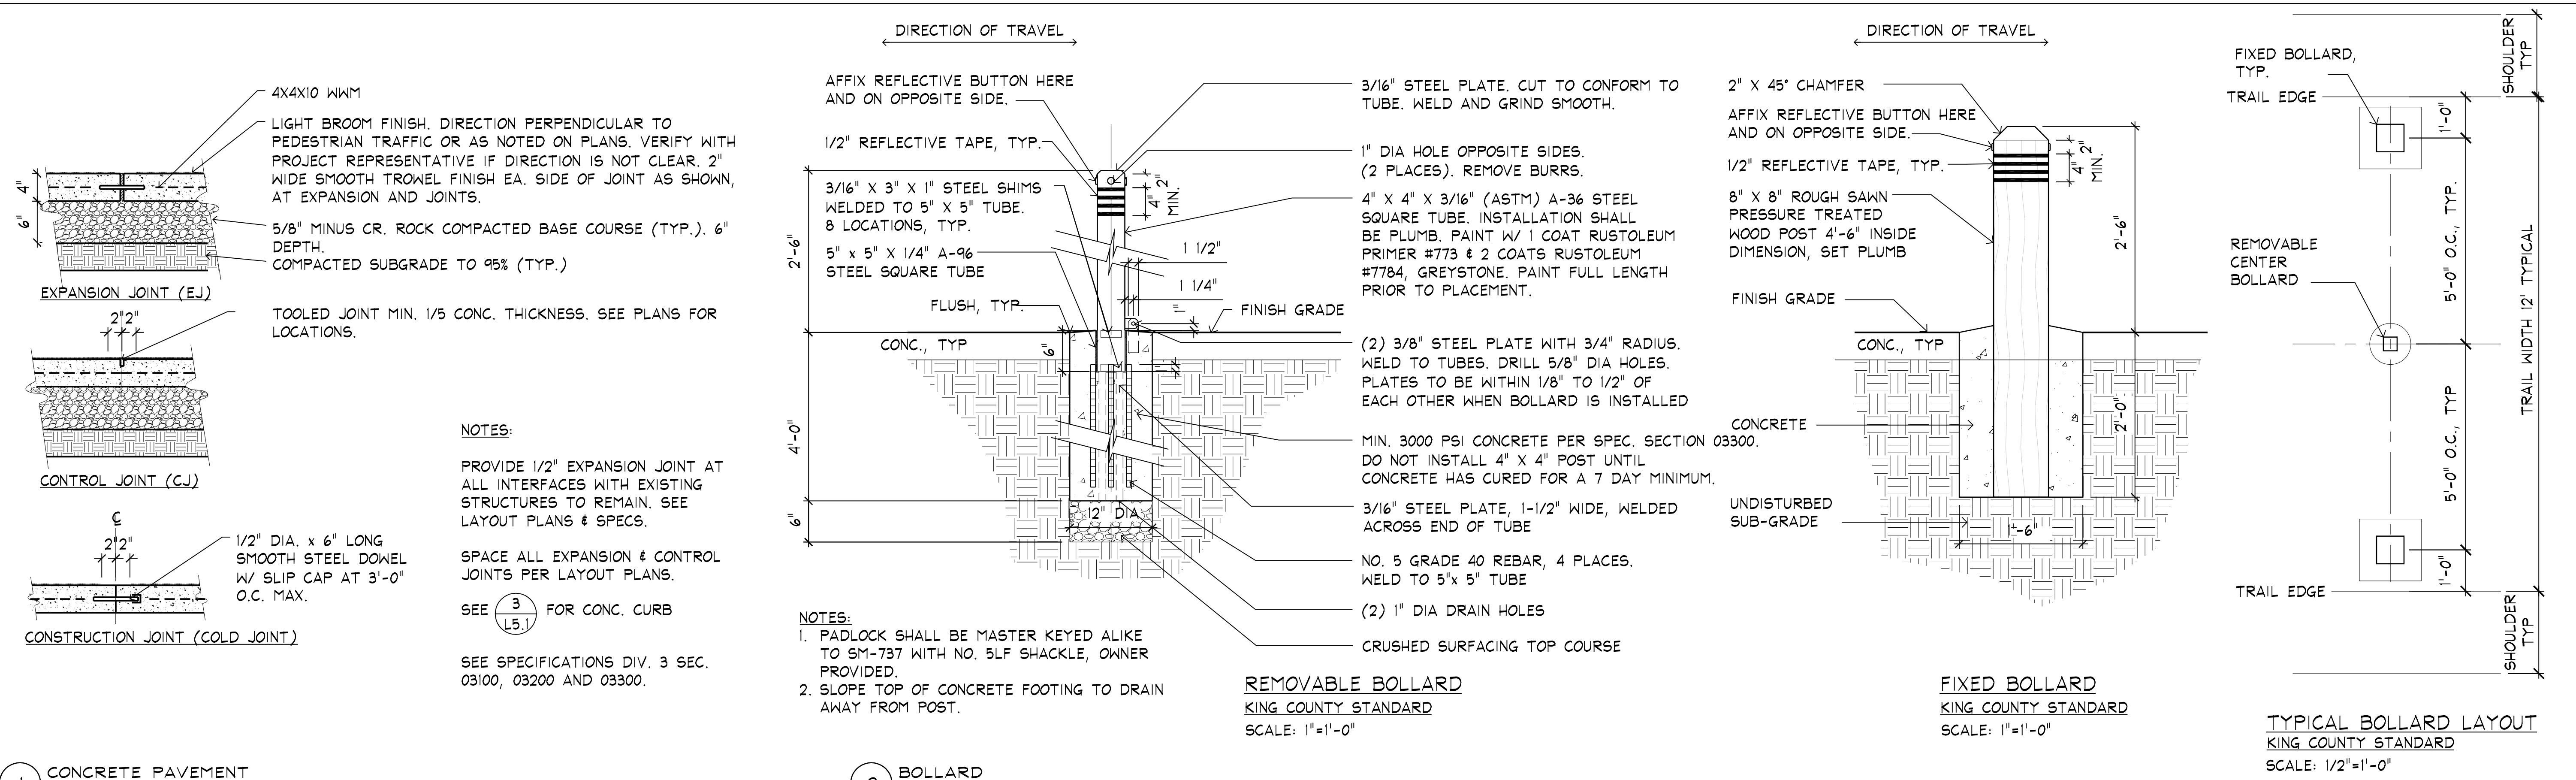 4X4X10 WWM
LIGHT BROOM FINISH. DIRECTION PERPENDICULAR TO
PEDESTRIAN TRAFFIC OR AS NOTED ON PLANS. VERIFY WITH
PROJECT REPRESENTATIVE IF DIRECTION IS NOT CLEAR. 2"
WIDE SMOOTH TROWEL FINISH EA. SIDE OF JOINT AS SHOWN,
AT EXPANSION AND JOINTS.
4"
6"
5/8" MINUS CR. ROCK COMPACTED BASE COURSE (TYP.). 6"
DEPTH.
COMPACTED SUBGRADE TO 95% (TYP.)
EXPANSION JOINT (EJ)
TOOLED JOINT MIN. 1/5 CONC. THICKNESS. SEE PLANS FOR
LOCATIONS.
2" 2"
CONTROL JOINT (CJ)
℄
2" 2"
1/2" DIA. x 6" LONG
SMOOTH STEEL DOWEL
W/ SLIP CAP AT 3'-0"
O.C. MAX.
CONSTRUCTION JOINT (COLD JOINT)
NOTES:
PROVIDE 1/2" EXPANSION JOINT AT
ALL INTERFACES WITH EXISTING
STRUCTURES TO REMAIN. SEE
LAYOUT PLANS & SPECS.
SPACE ALL EXPANSION & CONTROL
JOINTS PER LAYOUT PLANS.
SEE 3 L5.1 FOR CONC. CURB
SEE SPECIFICATIONS DIV. 3 SEC.
03100, 03200 AND 03300.
CONCRETE PAVEMENT
DIRECTION OF TRAVEL
AFFIX REFLECTIVE BUTTON HERE
AND ON OPPOSITE SIDE.
1/2" REFLECTIVE TAPE, TYP.
3/16" X 3" X 1" STEEL SHIMS
WELDED TO 5" X 5" TUBE.
8 LOCATIONS, TYP.
5" x 5" X 1/4" A-96
STEEL SQUARE TUBE
FLUSH, TYP.
CONC., TYP
2'-6"
4'-0"
6"
6"
12" DIA
4" 2"
MIN.
1 1/2"
1 1/4"
1"
1"
FINISH GRADE
3/16" STEEL PLATE. CUT TO CONFORM TO
TUBE. WELD AND GRIND SMOOTH.
1" DIA HOLE OPPOSITE SIDES.
(2 PLACES). REMOVE BURRS.
4" X 4" X 3/16" (ASTM) A-36 STEEL
SQUARE TUBE. INSTALLATION SHALL
BE PLUMB. PAINT W/ 1 COAT RUSTOLEUM
PRIMER #773 & 2 COATS RUSTOLEUM
#7784, GREYSTONE. PAINT FULL LENGTH
PRIOR TO PLACEMENT.
(2) 3/8" STEEL PLATE WITH 3/4" RADIUS.
WELD TO TUBES. DRILL 5/8" DIA HOLES.
PLATES TO BE WITHIN 1/8" TO 1/2" OF
EACH OTHER WHEN BOLLARD IS INSTALLED
MIN. 3000 PSI CONCRETE PER SPEC. SECTION 03300.
DO NOT INSTALL 4" X 4" POST UNTIL
CONCRETE HAS CURED FOR A 7 DAY MINIMUM.
3/16" STEEL PLATE, 1-1/2" WIDE, WELDED
ACROSS END OF TUBE
NO. 5 GRADE 40 REBAR, 4 PLACES.
WELD TO 5"x 5" TUBE
(2) 1" DIA DRAIN HOLES
CRUSHED SURFACING TOP COURSE
NOTES:
1. PADLOCK SHALL BE MASTER KEYED ALIKE
TO SM-737 WITH NO. 5LF SHACKLE, OWNER
PROVIDED.
2. SLOPE TOP OF CONCRETE FOOTING TO DRAIN
AWAY FROM POST.
REMOVABLE BOLLARD
KING COUNTY STANDARD
SCALE: 1"=1'-0"
BOLLARD
DIRECTION OF TRAVEL
2" X 45° CHAMFER
AFFIX REFLECTIVE BUTTON HERE
AND ON OPPOSITE SIDE.
1/2" REFLECTIVE TAPE, TYP.
8" X 8" ROUGH SAWN
PRESSURE TREATED
WOOD POST 4'-6" INSIDE
DIMENSION, SET PLUMB
FINISH GRADE
CONC., TYP
CONCRETE
UNDISTURBED
SUB-GRADE
4" 2"
MIN.
2'-6"
2'-0"
1'-6"
FIXED BOLLARD
KING COUNTY STANDARD
SCALE: 1"=1'-0"
FIXED BOLLARD,
TYP.
TRAIL EDGE
REMOVABLE
CENTER
BOLLARD
TRAIL EDGE
SHOULDER
TYP
1'-0"
5'-0" O.C., TYP.
TRAIL WIDTH 12' TYPICAL
5'-0" O.C., TYP
1'-0"
SHOULDER
TYP
TYPICAL BOLLARD LAYOUT
KING COUNTY STANDARD
SCALE: 1/2"=1'-0"